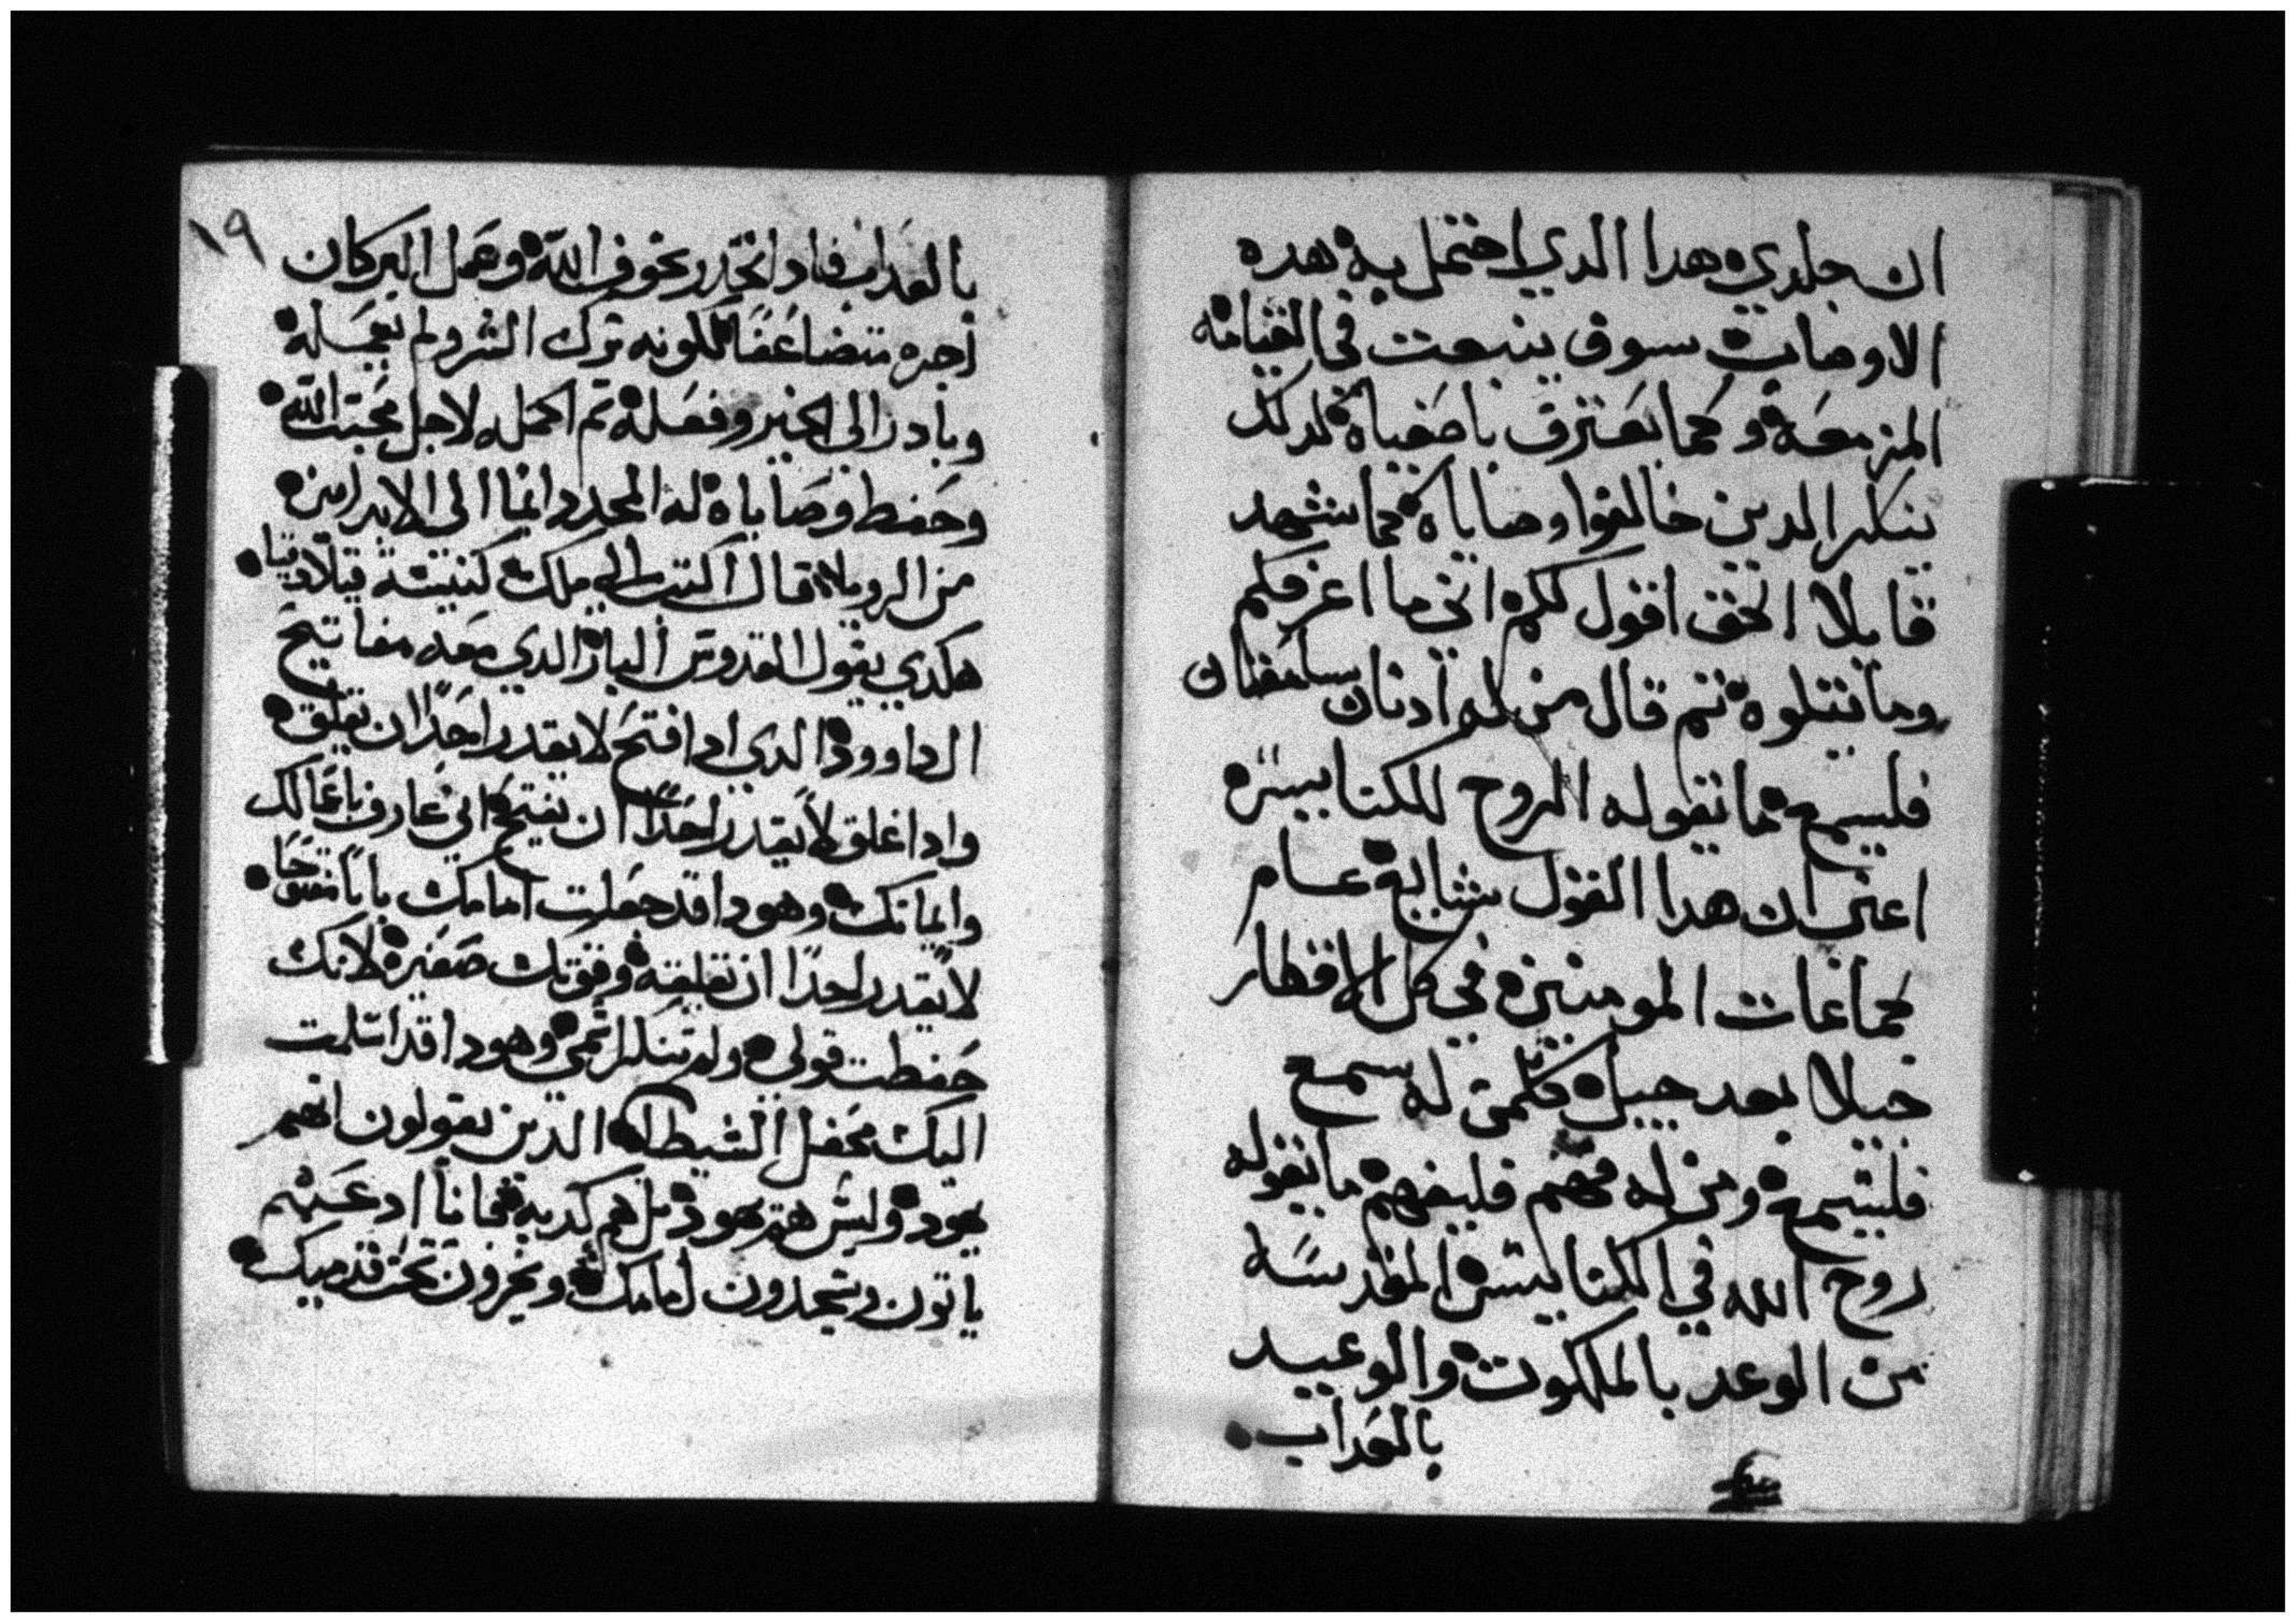 ان جلدي هدا الدي احتمل به هده
الاوصاب سوف ينبعت في القيامه
المزمعه وكما يعترف باصفياه كدلك
ينكر الدين خالفوا وصاياه كما يشهد
قايلا الحق اقول لكم اني ما اعرفكم
وما يتلوه تم قال من له ادنان سامعتان
فليسمع ما يقوله الروح للكنايس
اعني ان هدا القول شايع عام
لجماعات المومنين في كل الاقطار
جيلا بعد جيل فمن له سمع
فليسمع ومن له فهم فليفهم ما يقوله
روح الله في الكنايس المقدسه
من الوعد بالملكوت والوعيد
بالعداب
١٩
بالعداب فادا تحدر بخوف الله وعمل البر كان
اجره متضاعفا لكونه ترك الشر ولم يعمله
وبادر الى الخير وفعله تم اكمله لاجل محبت الله
وحفط وصاياه له المجد دايما الى الابد امين
من الرويا قال اكتب الى ملاك كنيسة فيلادفيا
هكدي يقول القدوس البار الدي معه مفاتيح
الداوود الدي ادا فتح لا يقدر احدا ان يغلق
وادا غلق لا يقدر احدا ان يفتح اني عارف باعمالك
وايمانك وهودا قد جعلت امامك بابا مفتوحا
لا يقدر احدا ان يغلقه وقوتك صغيره لانك
حفطت قولي ولم تنكر اسمي وهودا قد اسلمت
اليك محفل الشيطان الدين يقولون انهم
يهود وليس هم يهود بل هم كدبه فادا ادعيتهم
ياتون ويسجدون امامك ويخرون تحت قدميك